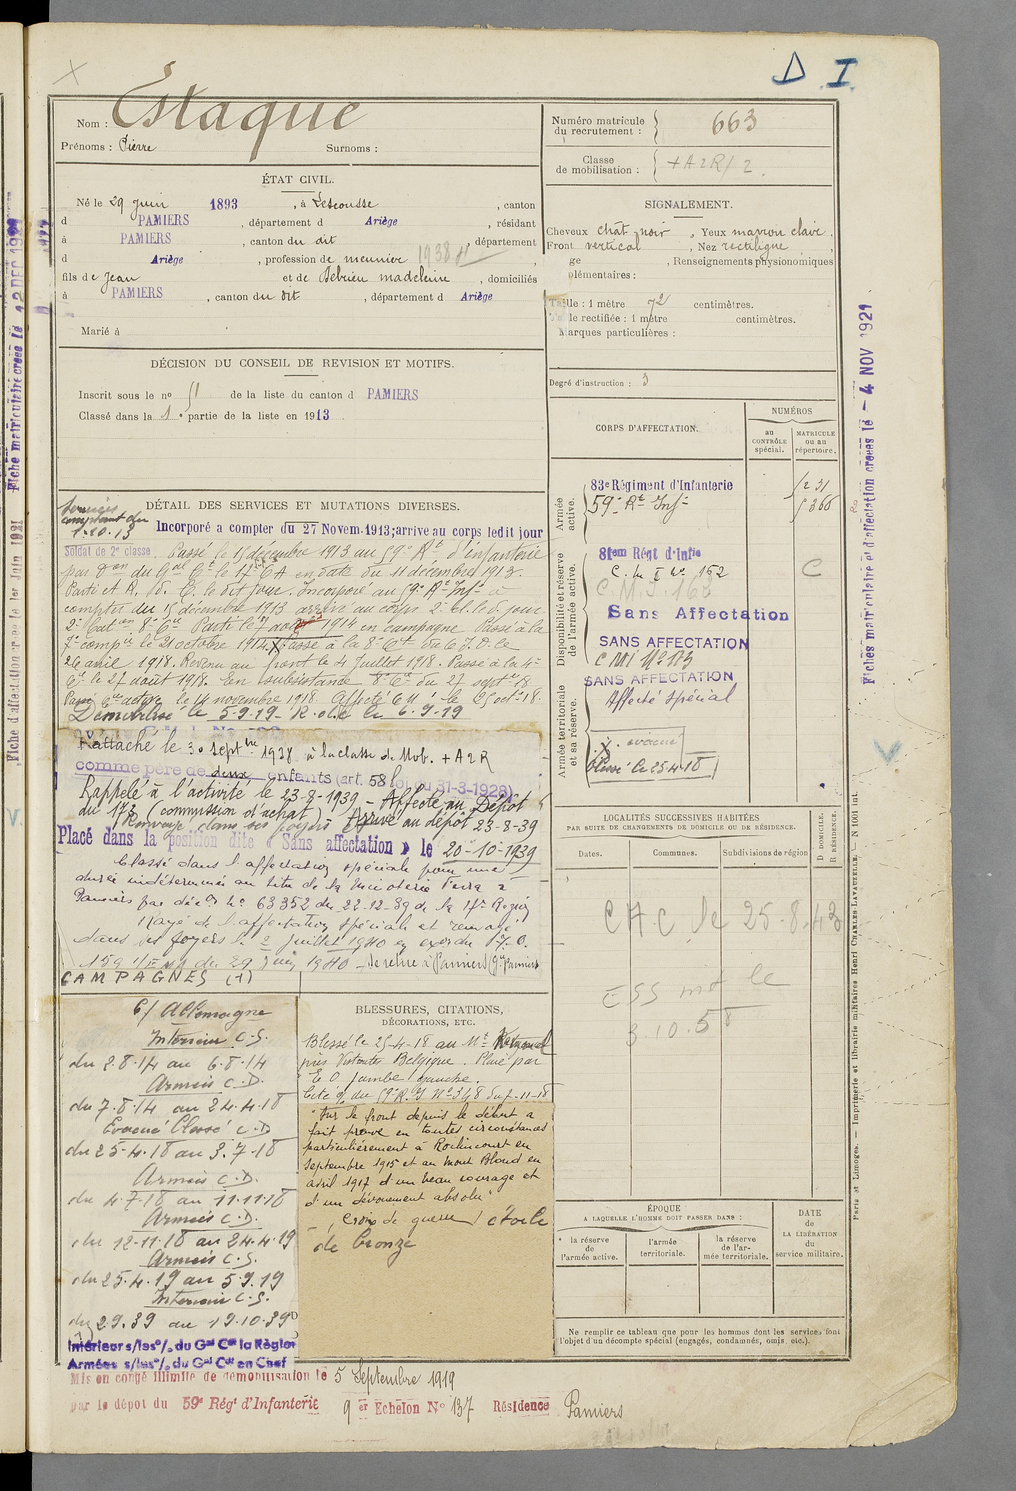 D I
Nom : Estaque
Prénoms : Pierre Surnoms :
Numéro matricule du recrutement : 663
Classe de mobilisation : + A2R/2
ÉTAT CIVIL.
Né le 29 juin 1893, à Lescousse, canton
d PAMIERS, département d Ariège, résidant
à PAMIERS, canton du dit, département
d Ariège, profession de meunier 1938
fils de Jean et de Debrieu madeleine, domiciliés
à PAMIERS, canton du dit, département d Ariège
Marié à
SIGNALEMENT.
Cheveux chat. noir, Yeux marron clair,
Front vertical, Nez rectiligne,
ge , Renseignements physionomiques
plémentaires :
Taille : 1 mètre 72 centimètres.
le rectifiée : 1 mètre centimètres.
Marques particulières :
Degré d'instruction : 3
DÉCISION DU CONSEIL DE REVISION ET MOTIFS.
Inscrit sous le no 51 de la liste du canton d PAMIERS
Classé dans la 1e partie de la liste en 1913
CORPS D'AFFECTATION.
NUMÉROS
au CONTRÔLE spécial.
MATRICULE ou au répertoire.
Armée active.
83e Régiment d'Infanterie
59e Rt Infie
Disponibilité et réserve de l'armée active.
81em Régt d'Infie
C. M. I No 162
C. M. I. 163
C
Sans Affectation
SANS AFFECTATION
C M I No 173
SANS AFFECTATION
Armée territoriale et sa réserve.
Affecté spécial
évacué
blessé le 25-4-18
DÉTAIL DES SERVICES ET MUTATIONS DIVERSES.
Services comptant du 1-10-13
Incorporé a compter du 27 Novem. 1913; arrive au corps ledit jour
Soldat de 2e classe. Passé le 15 décembre 1913 au 59e Rt d'infanterie
par on du Gal Ct le 17e CA en date du 11 décembre 1913.
Parti et A. D. C. le dit jour. Incorporé au 59e Rt Infie à
compter du 15 décembre 1913 arrivé au corps 2e cl. le d. jour
2e Baton 8e Cie Parti le 7 août 1914 en campagne. Passé à la
7e compie le 21 octobre 1914. Passé à la 8e Cie du C.I.D. le
26 avril 1918. Revenu au front le 4 Juillet 1918. Passé à la 4e
Cie le 27 août 1918. En subsistance 8e Cie du 27 septe 18
Passé Cie active le 14 novembre 1918. Affecté C M 1 le 25 oct-18.
Démobilisé le 5-9-19 - R.d.l.C le 6-9-19
Rattaché le 30 Septbre 1938 à la classe de Mob. + A2R
comme père de deux enfants (art. 58 loi du 31-3-1928)
Rappelé à l'activité le 23-8-1939 - Affecté au Dépôt
du 173 (commission d'achat) Arrivé au dépôt 23-8-39
Renvoyé dans ses foyers
Placé dans la position dite « Sans affectation » le 20-10-1939
Classé dans l'affectation spéciale pour une
durée indéterminée au titre de la Minoterie
Pamiers par décis no 63352 du 22-12-39 de la 17e Région
Rayé de l'affectation spéciale et renvoyé
dans ses foyers le 2 juillet 1940 en exon du T.O.
159 1/EMA du 29 Juin 1940 - Se retire à Pamiers
CAMPAGNES (1)
C/ Allemagne
Intérieur C.S.
du 2.8.14 au 6.8.14
Armées C.D.
du 7.8.14 au 24.4.18
Evacué Blessé C.D
du 25-4-18 au 3.7-18
Armées C.D.
du 4-7-18 au 11.11.18
Armées C.D.
du 12-11-18 au 24.4.19
Armées C.S.
du 25.4.19 au 5.9.19
Intérieur C.S.
du 2.9.39 au 19.10.39
Intérieur s/les o/. du Gal Ct la Région
Armées s/les o/. du Gal Ct en Chef
BLESSURES, CITATIONS,
DÉCORATIONS, ETC.
Blessé le 25-4-18 au Mt Kemmel
près Belgique. Plaie par
E O jambe gauche.
Cité o/. du 59e R.I No 348 du -11-18
"Sur le front depuis le début a
fait preuve en toutes circonstances
particulièrement à Roclincourt en
Septembre 1915 et au Mont Blond en
avril 1917 d'un beau courage et
d'un dévouement absolu"
Croix de guerre étoile
de bronze
LOCALITÉS SUCCESSIVES HABITÉES
PAR SUITE DE CHANGEMENTS DE DOMICILE OU DE RÉSIDENCE.
Dates. Communes. Subdivisions de région
D. DOMICILE. R. RÉSIDENCE.
CHC le 25-8-43
ESS le
3.10.5
ÉPOQUE
A LAQUELLE L'HOMME DOIT PASSER DANS :
la réserve de l'armée active.
l'armée territoriale.
la réserve de l'armée territoriale.
DATE de LA LIBÉRATION du service militaire.
Ne remplir ce tableau que pour les hommes dont les services font
l'objet d'un décompte spécial (engagés, condamnés, omis, etc.).
Mis en congé illimité de démobilisation le 5 Septembre 1919
par le dépôt du 59e Régt d'Infanterie 9er Echelon No 137 Résidence Pamiers
Fiches matriculaire et d'affectation creees le - 4 NOV 1921
Paris et Limoges. — Imprimerie et librairie militaires Henri CHARLES-LAVAUZELLE. — N 1001 int.
Fiche matriculaire creee le 12 DEC 1921
Fiche d'affectation creee le 1er Juin 1921